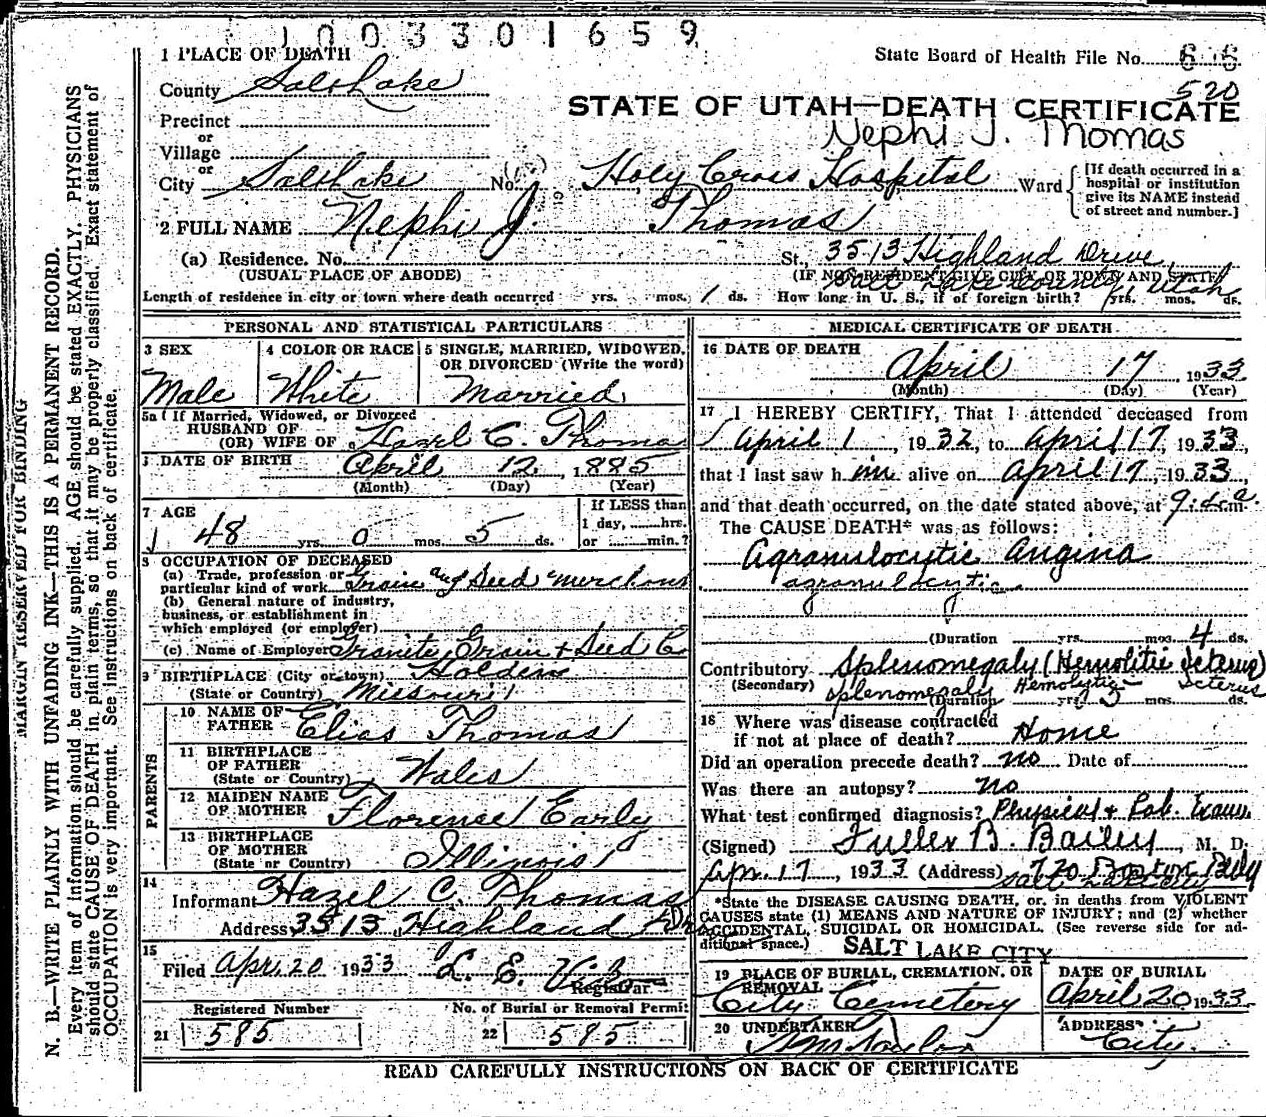 1003301659
1 PLACE OF DEATH
State Board of Health File No.
County Salt Lake
520
STATE OF UTAH—DEATH CERTIFICATE
Precinct
Nephi J. Thomas
or
Village
or
City Salt Lake No. Holy Cross Hospital Ward
[If death occurred in a hospital or institution give its NAME instead of street and number.]
2 FULL NAME Nephi J. Thomas
(a) Residence. No. St., 3513 Highland Drive,
(USUAL PLACE OF ABODE) (IF NON-RESIDENT GIVE CITY OR TOWN AND STATE)
Salt Lake County, Utah
Length of residence in city or town where death occurred yrs. mos. 1 ds. How long in U. S., if of foreign birth? yrs. mos. ds.
PERSONAL AND STATISTICAL PARTICULARS
3 SEX
Male
4 COLOR OR RACE
White
5 SINGLE, MARRIED, WIDOWED, OR DIVORCED (Write the word)
Married
5a If Married, Widowed, or Divorced
HUSBAND OF
(OR) WIFE OF Hazel C. Thomas
DATE OF BIRTH April 12, 1885
(Month) (Day) (Year)
7 AGE
48 yrs. 0 mos. 5 ds.
If LESS than
1 day, hrs.
or min.?
8 OCCUPATION OF DECEASED
(a) Trade, profession or
particular kind of work Grain and Seed merchant
(b) General nature of industry,
business, or establishment in
which employed (or employer)
(c) Name of Employer Granite Grain & Seed Co
9 BIRTHPLACE (City or town) Holden
(State or Country) Missouri
PARENTS
10 NAME OF
FATHER Elias Thomas
11 BIRTHPLACE
OF FATHER
(State or Country) Wales
12 MAIDEN NAME
OF MOTHER Florence Early
13 BIRTHPLACE
OF MOTHER
(State or Country) Illinois
14
Informant Hazel C. Thomas
Address 3513 Highland Dr
15
Filed Apr. 20 1933 L. E.
Registrar
Registered Number
21 585
No. of Burial or Removal Permit
22 585
MEDICAL CERTIFICATE OF DEATH
16 DATE OF DEATH
April 17, 1933
(Month) (Day) (Year)
17 I HEREBY CERTIFY, That I attended deceased from
April 1, 1932, to April 17, 1933,
that I last saw him alive on April 17, 1933,
and that death occurred, on the date stated above, at 9: a.m.
The CAUSE DEATH* was as follows:
Agranulocytic Angina
agranulocytic
(Duration yrs. mos. 4 ds.
Contributory Splenomegaly (Hemolitic Icterus)
(Secondary) splenomegaly Hemolytic Icterus
(Duration yrs. mos. ds.
18 Where was disease contracted
if not at place of death? Home
Did an operation precede death? no Date of
Was there an autopsy? no
What test confirmed diagnosis? Physical & Lab. Exam.
(Signed) Fuller B. Bailey, M. D.
Apr. 17, 1933 (Address) 720 Boston Bldg
Salt Lake City
*State the DISEASE CAUSING DEATH, or, in deaths from VIOLENT
CAUSES state (1) MEANS AND NATURE OF INJURY; and (2) whether
ACCIDENTAL, SUICIDAL OR HOMICIDAL. (See reverse side for ad-
ditional space.)
SALT LAKE CITY
19 PLACE OF BURIAL, CREMATION, OR
REMOVAL
City Cemetery
DATE OF BURIAL
April 20 1933
20 UNDERTAKER
ADDRESS
City.
READ CAREFULLY INSTRUCTIONS ON BACK OF CERTIFICATE
MARGIN RESERVED FOR BINDING
N. B.—WRITE PLAINLY WITH UNFADING INK—THIS IS A PERMANENT RECORD.
Every item of information should be carefully supplied. AGE should be stated EXACTLY. PHYSICIANS
should state CAUSE OF DEATH in plain terms, so that it may be properly classified. Exact statement of
OCCUPATION is very important. See instructions on back of certificate.